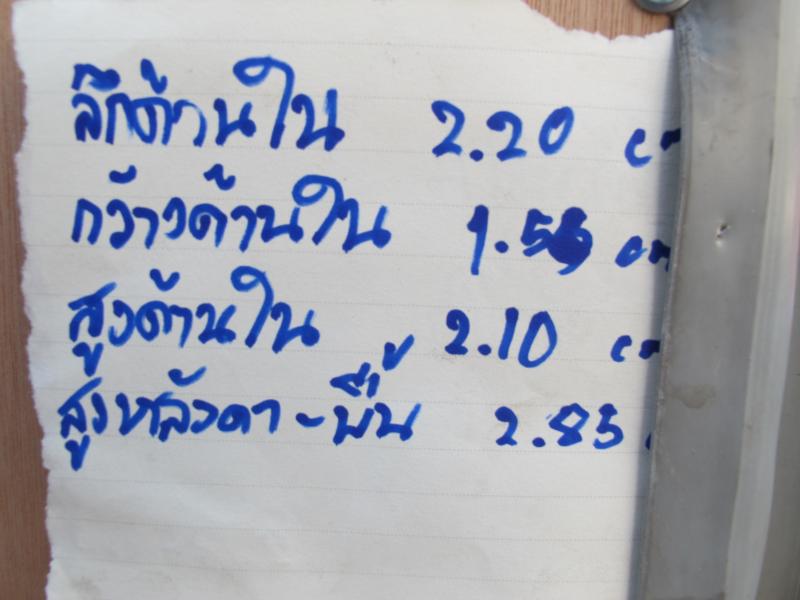 ลึกด้านใน 2.20 cm
กว้างด้านใน 1.55 cm
สูงด้านใน 2.10 cm
สูงหลังคา-พื้น 2.85